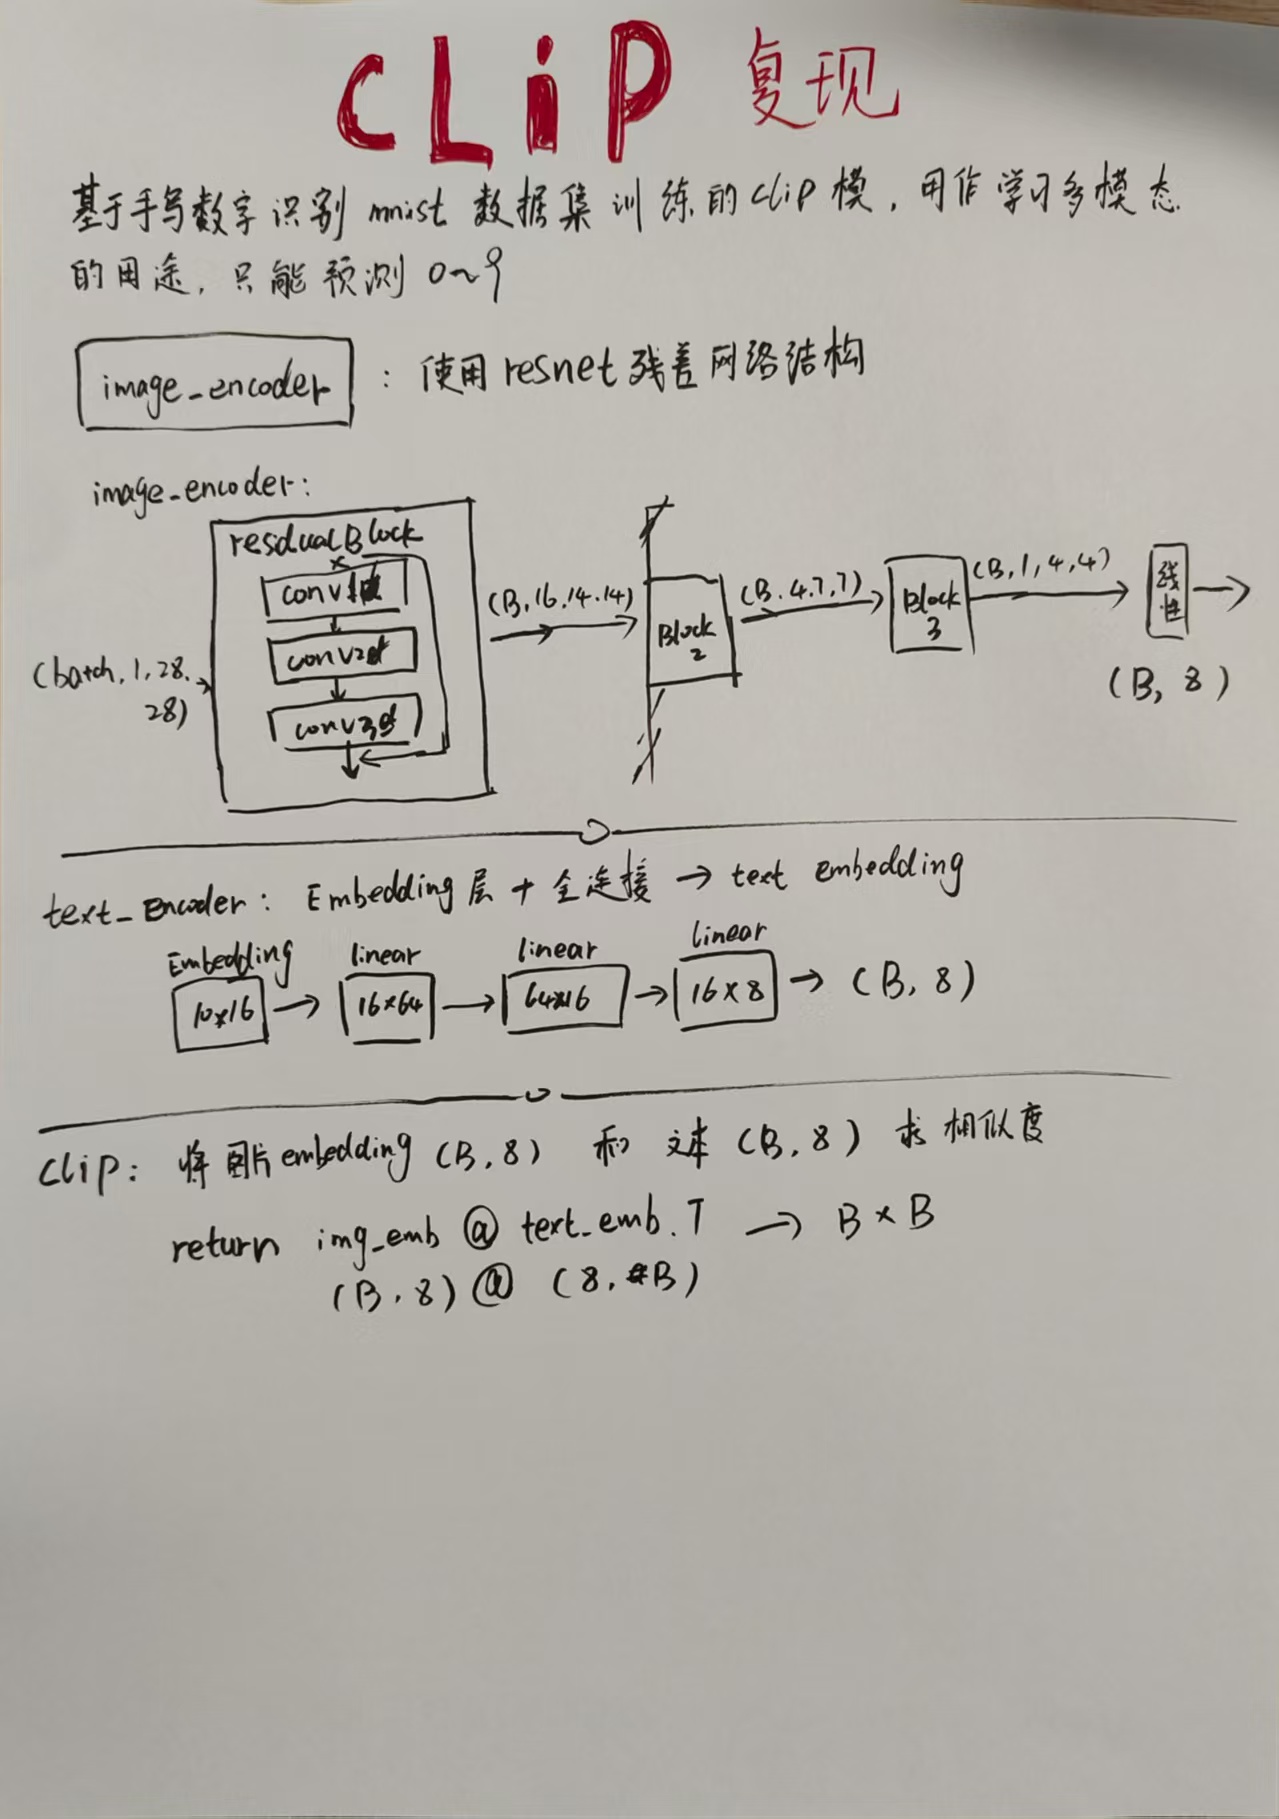 CLiP 复现
基于手写数字识别 mnist 数据集训练的clip模,用作学习多模态
的用途,只能预测0~9
image_encoder : 使用resnet残差网络结构
image_encoder:
residualBlock
x
conv1d
conv2d
conv3d
(batch,1,28,
28)
(B,16,14,14)
Block
2
(B,4,7,7)
Block
3
(B,1,4,4)
线性
(B, 8)
text_Encoder: Embedding层+全连接→text embedding
Embedding linear linear linear
10×16 → 16×64 → 64×16 → 16×8 → (B,8)
clip: 将图片embedding(B,8) 和 文本(B,8) 求相似度
return img_emb @ text_emb.T → B×B
(B,8)@ (8,B)